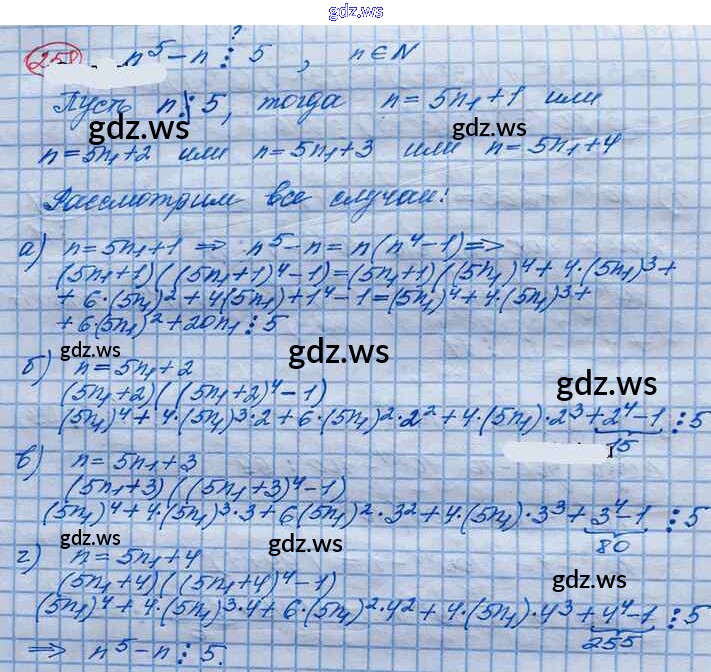 gdz.ws
258 n⁵-n ⋮? 5, n∈N
Пусть n ⋮̸ 5, тогда n=5n₁+1 или
gdz.ws gdz.ws
n=5n₁+2 или n=5n₁+3 или n=5n₁+4
Рассмотрим все случаи:
а) n=5n₁+1 ⇒ n⁵-n=n(n⁴-1)⇒
(5n₁+1)((5n₁+1)⁴-1)=(5n₁+1)((5n₁)⁴+4·(5n₁)³+
+6·(5n₁)²+4(5n₁)+1⁴-1=(5n₁)⁴+4·(5n₁)³+
+6·(5n₁)²+20n₁ ⋮ 5
gdz.ws gdz.ws
б) n=5n₁+2
gdz.ws
(5n₁+2)((5n₁+2)⁴-1)
(5n₁)⁴+4·(5n₁)³·2+6·(5n₁)²·2²+4·(5n₁)·2³+2⁴-1 ⋮ 5
15
в) n=5n₁+3
(5n₁+3)((5n₁+3)⁴-1)
(5n₁)⁴+4·(5n₁)³·3+6(5n₁)²·3²+4·(5n₁)·3³+3⁴-1 ⋮ 5
80
gdz.ws gdz.ws
г) n=5n₁+4
(5n₁+4)((5n₁+4)⁴-1)
gdz.ws
(5n₁)⁴+4·(5n₁)³·4+6·(5n₁)²·4²+4·(5n₁)·4³+4⁴-1 ⋮ 5
255
⇒ n⁵-n ⋮ 5.
gdz.ws